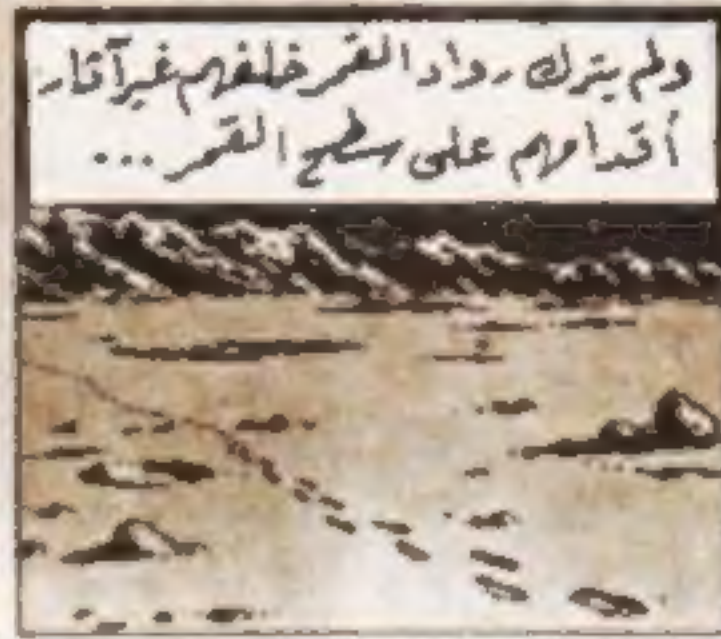 ولم يترك رواد القمر خلفهم غير آثار
أقدامهم على سطح القمر ...